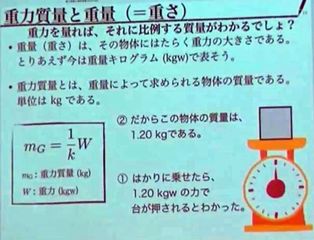 重力質量と重量（＝重さ）
重力を量れば、それに比例する質量がわかるでしょ？
• 重量（重さ）は、その物体にはたらく重力の大きさである。
とりあえず今は重量キログラム (kgw) で表そう。
• 重力質量とは、重量によって求められる物体の質量である。
単位は kg である。
m_G = 1/k W
m_G : 重力質量 (kg)
W : 重力 (kgw)
② だからこの物体の質量は、
1.20 kgである。
① はかりに乗せたら、
1.20 kgw の力で
台が押されるとわかった。